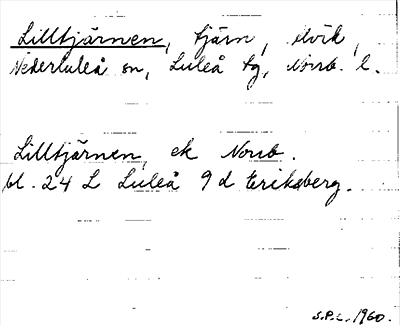 Lilltjärnen, tjärn, Alvik,
Nederluleå sn, Luleå tg, Norrb. l.
Lilltjärnen, ek Norrb.
bl. 24 L Luleå 9 d Eriksberg.
S.P.L. 1960.